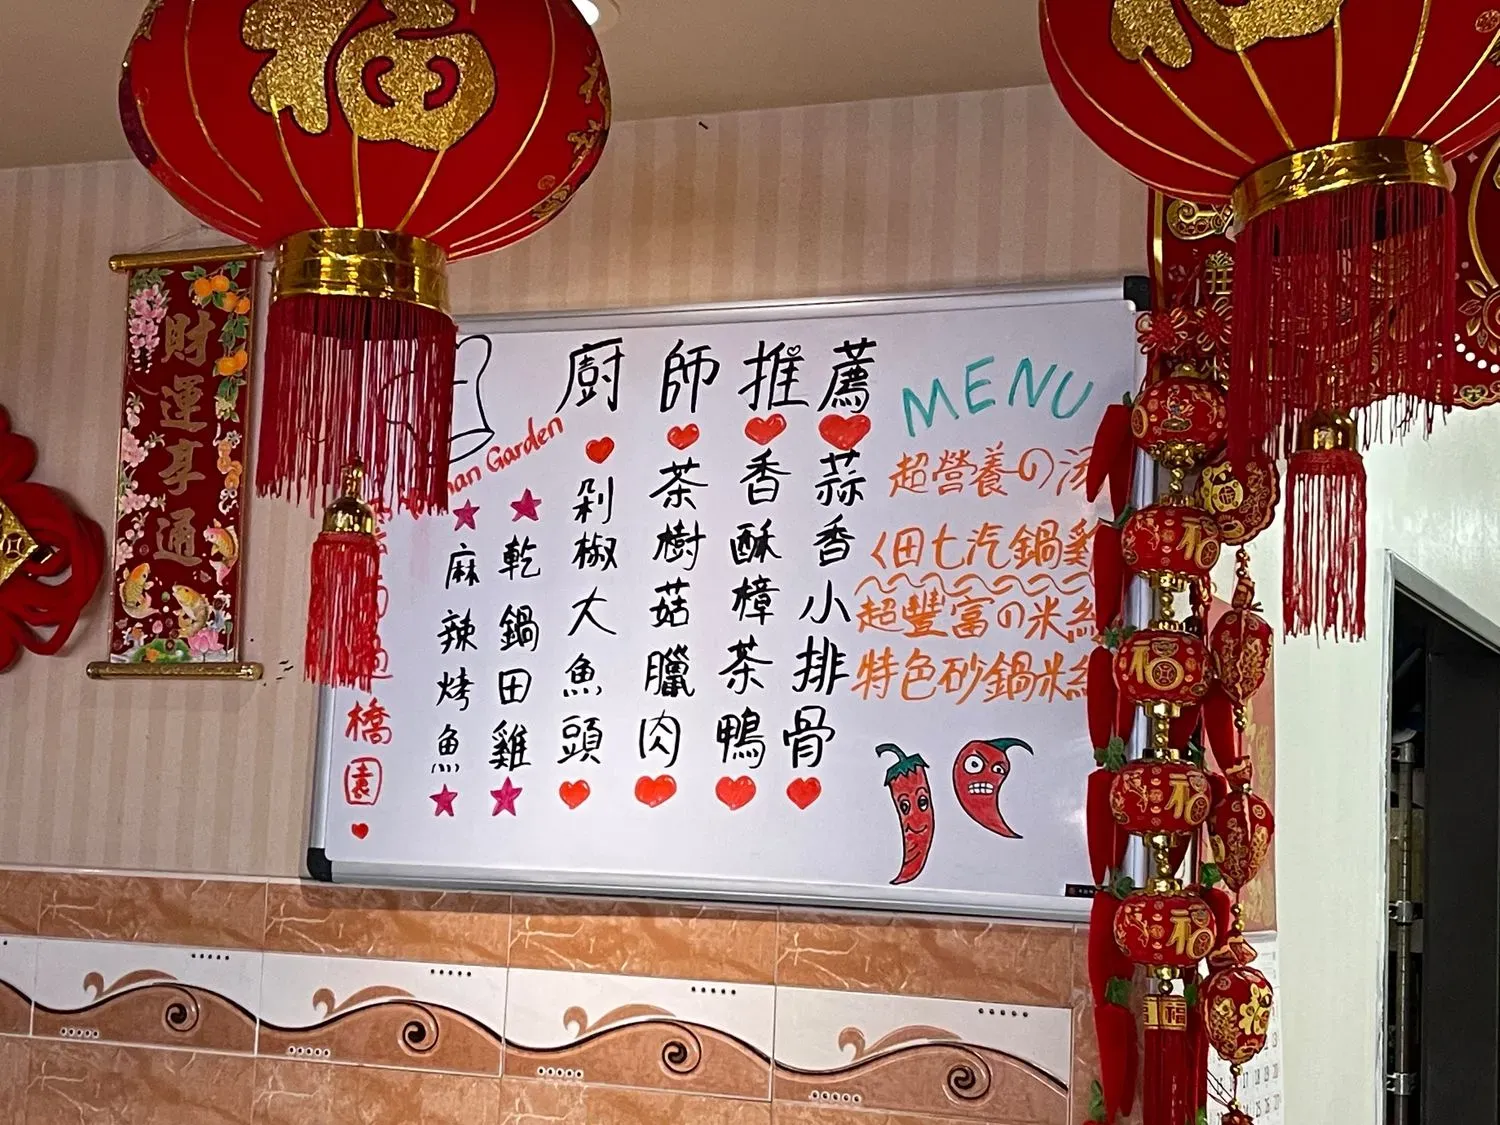 福
財運享通
廚師推薦
MENU
Garden
蒜香小排骨
香酥樟茶鴨
茶樹菇臘肉
剁椒大魚頭
乾鍋田雞
麻辣烤魚
橋園
超營養の湯
田七汽鍋雞
超豐富の米線
特色砂鍋米線
福
福
福
福
福